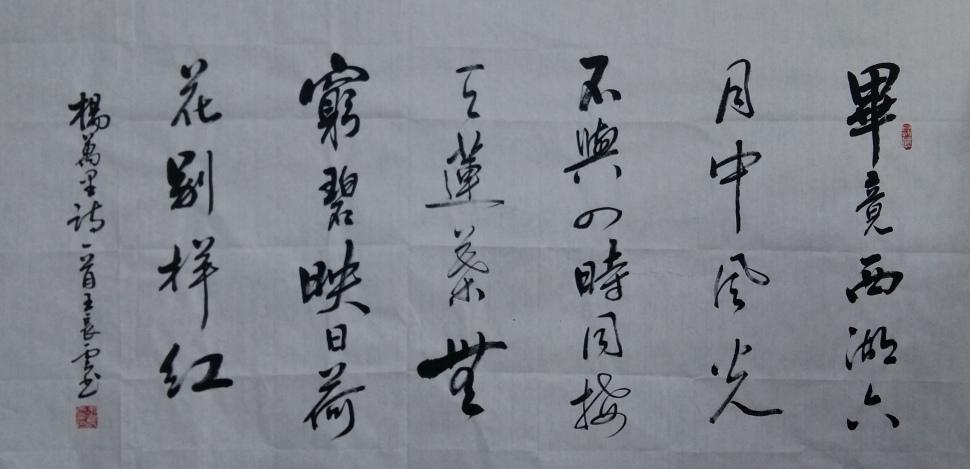 畢竟西湖六
月中风光
不與四時同接
天蓮葉無
窮碧映日荷
花别样红
楊萬里詩一首王長雲书